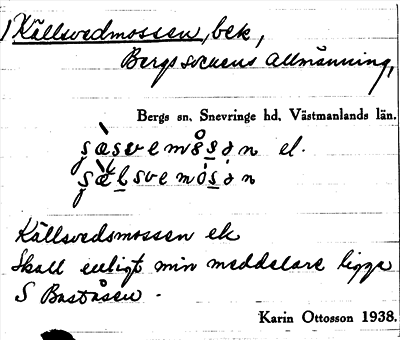 1) Källsvedmossen, bek,
Bergs sockens Allmänning,
Bergs sn, Snevringe hd, Västmanlands län.
el.
Källsvedsmossen ek
Skall enligt min meddelare ligga
S Baståsen.
Karin Ottosson 1938.